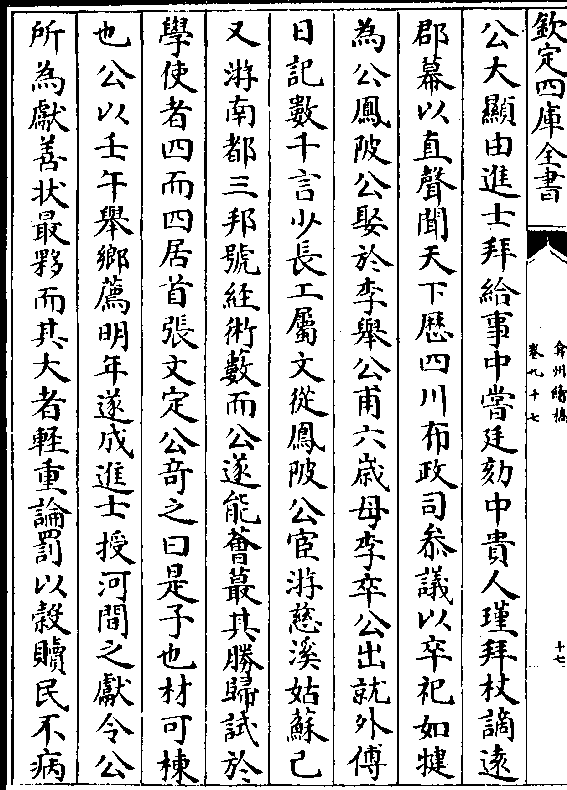 欽定四庫全書
弇州續稿
卷九十七
十七
公大顯由進士拜給事中嘗廷劾中貴人瑾拜杖謫遠
郡幕以直聲聞天下歴四川布政司叅議以卒祀如犍
為公鳳陂公娶於李舉公甫六歳母李卒公出就外傅
日記數千言少長工屬文從鳳陂公宦游慈溪姑蘇已
又游南都三邦號經術藪而公遂能薈蕞其勝歸試於
學使者四而四居首張文定公竒之曰是子也材可棟
也公以壬午舉鄉薦明年遂成進士授河間之獻令公
所為獻善状最夥而其大者軽重論罰以穀贖民不病